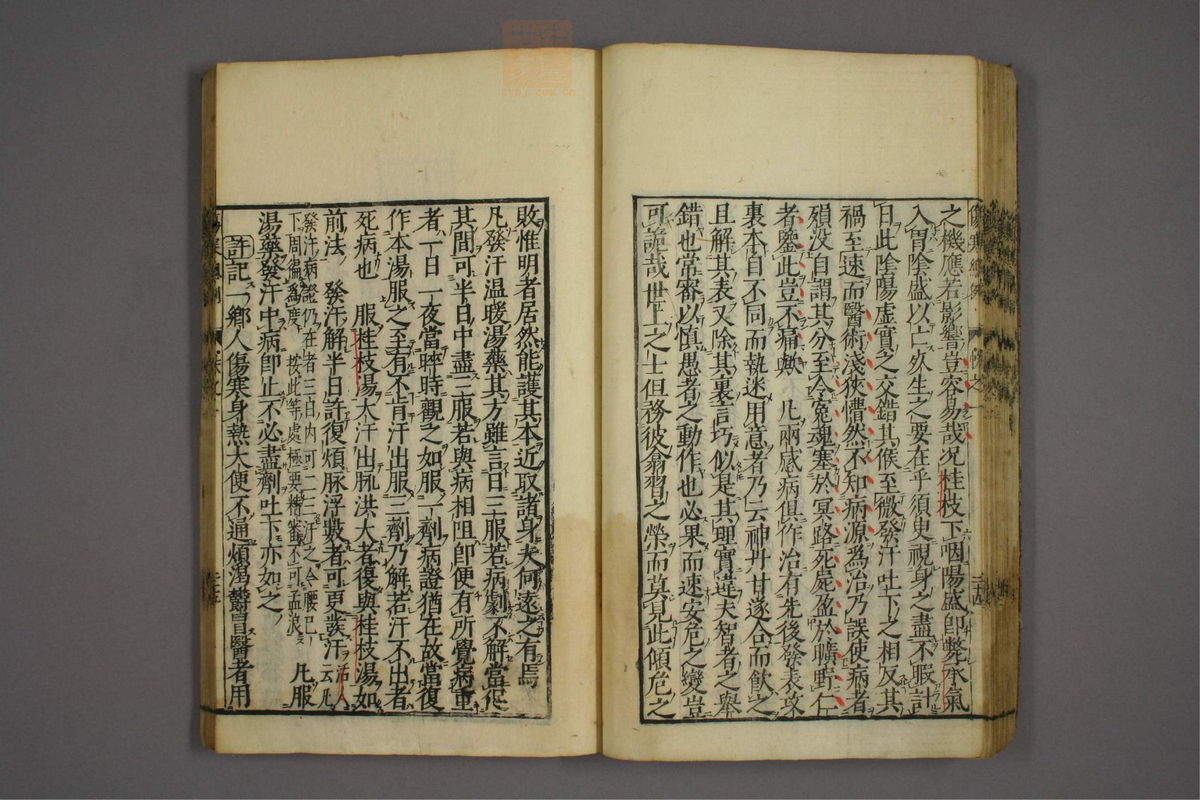 之機應若影響豈容易哉况桂枝下咽陽盛卽斃承氣
入胃陰盛以亡夾生之要在乎須臾視身之盡不暇計
日此陰陽虛實之交錯其候至微發汗吐下之相反其
禍至速而醫術淺狹懵然不知病源爲治乃誤使病者
殞没自謂其分至令冤魂塞於冥路死屍盈於曠野仁
者鑒此豈不痛歟　凡兩感病俱作治有先後發表攻
裏本自不同而執迷用意者乃云神丹甘遂合而飲之
且解其表又除其裏言巧似是其理實違夫智者之舉
錯也常審以慎愚者之動作也必果而速安危之變豈
可詭哉世上之士但務彼翕習之榮而莫見此傾危之
敗惟明者居然能護其本近取諸身夫何遠之有焉
凡發汗温暖湯藥其方雖言日三服若病劇不解當促
其間可半日中盡三服若與病相阻卽便有所覺病重
者一日一夜當晬時觀之如服一劑病證猶在故當復
作本湯服之至有不肯汗出服三劑乃解若汗不出者
死病也　服桂枝湯大汗出脉洪大者復與桂枝湯如
前法　發汗解半日許復煩脉浮數者可更發汗活人云凡
發汗病證仍在者三日内可二三汗之令腰已
下周徧爲度　按此等處極要精審不可孟浪　凡服
湯藥發汗中病卽止不必盡劑吐下亦如之
許記一鄉人傷寒身熱大便不通煩渴鬱冒醫者用